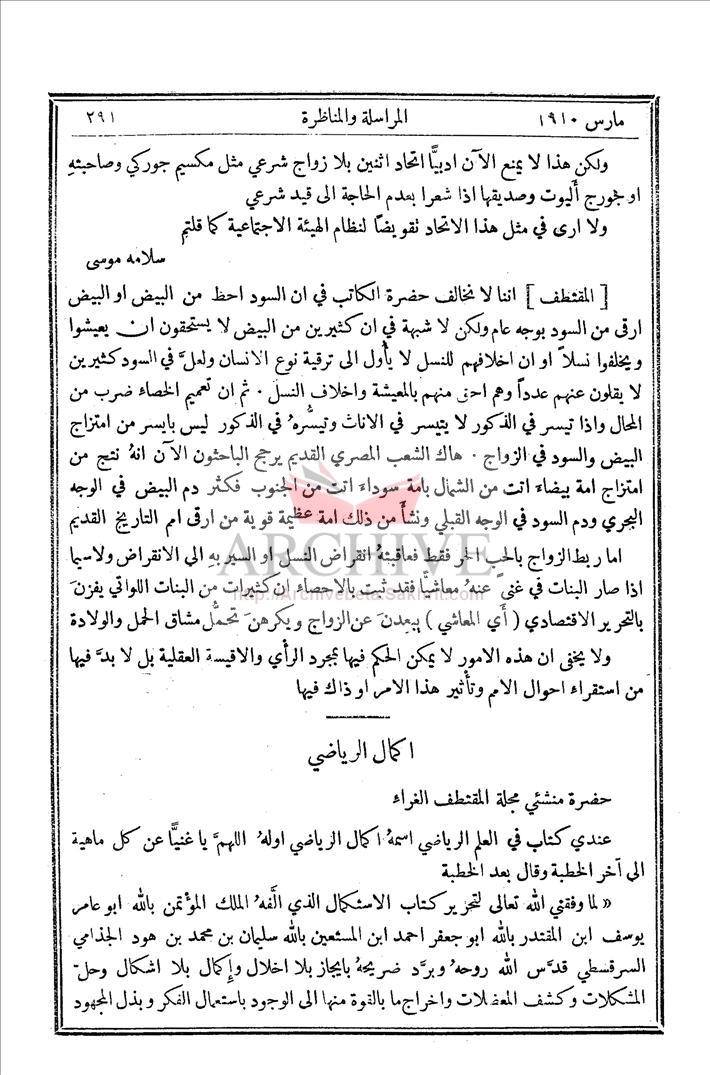 مارس ١٩١٠ المراسلة والمناظرة ٢٩١
ولكن هذا لا يمنع الآن ادبيًّا اتحاد اثنين بلا زواج شرعي مثل مكسيم جوركي وصاحبتهِ
او نجورج أليوت وصديقها اذا شعرا بعدم الحاجة الى قيد شرعي
ولا ارى في مثل هذا الاتحاد تقويضًا لنظام الهيئة الاجتماعية كما قلتم
سلامه موسى
[ المقتطف ] اننا لا نخالف حضرة الكاتب في ان السود احط من البيض او البيض
ارقى من السود بوجه عام ولكن لا شبهة في ان كثيرين من البيض لا يستحقون ان يعيشوا
ويخلفوا نسلاً او ان اخلافهم للنسل لا يأول الى ترقية نوع الانسان ولعلَّ في السود كثيرين
لا يقلون عنهم عدداً وهم احق منهم بالمعيشة واخلاف النسل . ثم ان تعميم الخصاء ضرب من
المحال واذا تيسر في الذكور لا يتيسر في الاناث وتيسُّرهُ في الذكور ليس بايسر من امتزاج
البيض والسود في الزواج . هاك الشعب المصري القديم يرجح الباحثون الآن انهُ نتج من
امتزاج امة بيضاء اتت من الشمال بامة سوداء اتت من الجنوب فكثر دم البيض في الوجه
البحري ودم السود في الوجه القبلي ونشأ من ذلك امة عظيمة قوية من ارقى امم التاريخ القديم
اما ربط الزواج بالحب الحر فقط فعاقبتهُ انقراض النسل او السير بهِ الى الانقراض ولاسيما
اذا صار البنات في غنى عنهُ معاشيًّا فقد ثبت بالاحصاء ان كثيرات من البنات اللواتي يفزنَ
بالتحرير الاقتصادي ( أي المعاشي ) يبعدنَ عن الزواج ويكرهنَ تحمُّل مشاق الحمل والولادة
ولا يخفى ان هذه الامور لا يمكن الحكم فيها بمجرد الرأي والاقيسة العقلية بل لا بدَّ فيها
من استقراء احوال الامم وتأثير هذا الامر او ذاك فيها
اكمال الرياضي
حضرة منشئي مجلة المقتطف الغراء
عندي كتاب في العلم الرياضي اسمهُ اكمال الرياضي اولهُ اللهمَّ يا غنيًّا عن كل ماهية
الى آخر الخطبة وقال بعد الخطبة
« لما وفقني الله تعالى لتحرير كتاب الاستكمال الذي الَّفهُ الملك المؤتمن بالله ابو عامر
يوسف ابن المقتدر بالله ابو جعفر احمد ابن المستعين بالله سليمان بن محمد بن هود الجذامي
السرقسطي قدَّس الله روحهُ وبرَّد ضريحهُ بايجاز بلا اخلال وإكمال بلا اشكال وحلّ
المشكلات وكشف المعضلات واخراج ما بالقوة منها الى الوجود باستعمال الفكر وبذل المجهود
ARCHIVE
http://Archivebeta.Sakhrit.com